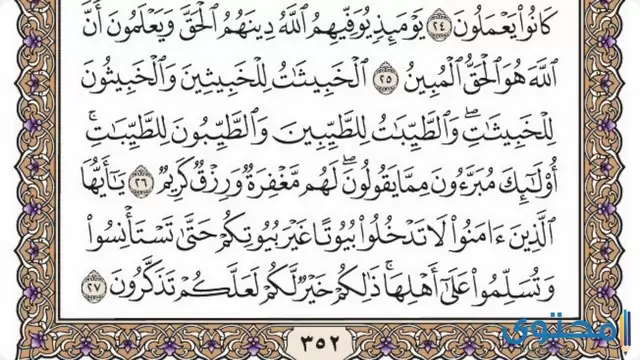 كَانُوا۟ يَعْمَلُونَ ٢٤ يَوْمَئِذٍ يُوَفِّيهِمُ ٱللَّهُ دِينَهُمُ ٱلْحَقَّ وَيَعْلَمُونَ أَنَّ
ٱللَّهَ هُوَ ٱلْحَقُّ ٱلْمُبِينُ ٢٥ ٱلْخَبِيثَـٰتُ لِلْخَبِيثِينَ وَٱلْخَبِيثُونَ
لِلْخَبِيثَـٰتِ ۖ وَٱلطَّيِّبَـٰتُ لِلطَّيِّبِينَ وَٱلطَّيِّبُونَ لِلطَّيِّبَـٰتِ ۚ
أُو۟لَـٰٓئِكَ مُبَرَّءُونَ مِمَّا يَقُولُونَ ۖ لَهُم مَّغْفِرَةٌ وَرِزْقٌ كَرِيمٌ ٢٦ يَـٰٓأَيُّهَا
ٱلَّذِينَ ءَامَنُوا۟ لَا تَدْخُلُوا۟ بُيُوتًا غَيْرَ بُيُوتِكُمْ حَتَّىٰ تَسْتَأْنِسُوا۟
وَتُسَلِّمُوا۟ عَلَىٰٓ أَهْلِهَا ۚ ذَٰلِكُمْ خَيْرٌ لَّكُمْ لَعَلَّكُمْ تَذَكَّرُونَ ٢٧
٣٥٢
محتوى